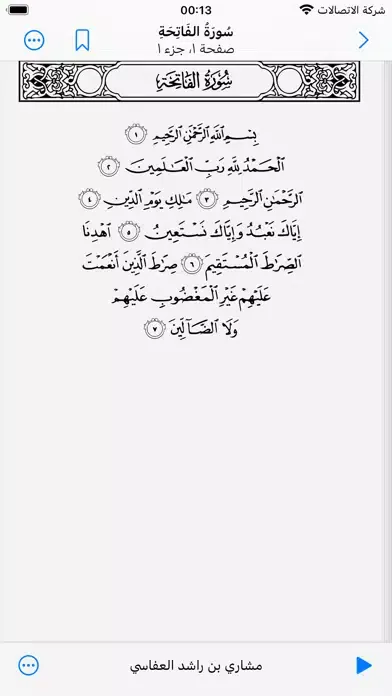 شركة الاتصالات 00:13
سُورَةُ الفَاتِحَةِ
صفحة ١، جزء ١
سُورَةُ الفَاتِحَةِ
بِسۡمِ ٱللَّهِ ٱلرَّحۡمَٰنِ ٱلرَّحِيمِ ١
ٱلۡحَمۡدُ لِلَّهِ رَبِّ ٱلۡعَٰلَمِينَ ٢
ٱلرَّحۡمَٰنِ ٱلرَّحِيمِ ٣ مَٰلِكِ يَوۡمِ ٱلدِّينِ ٤
إِيَّاكَ نَعۡبُدُ وَإِيَّاكَ نَسۡتَعِينُ ٥ ٱهۡدِنَا
ٱلصِّرَٰطَ ٱلۡمُسۡتَقِيمَ ٦ صِرَٰطَ ٱلَّذِينَ أَنۡعَمۡتَ
عَلَيۡهِمۡ غَيۡرِ ٱلۡمَغۡضُوبِ عَلَيۡهِمۡ
وَلَا ٱلضَّآلِّينَ ٧
مشاري بن راشد العفاسي